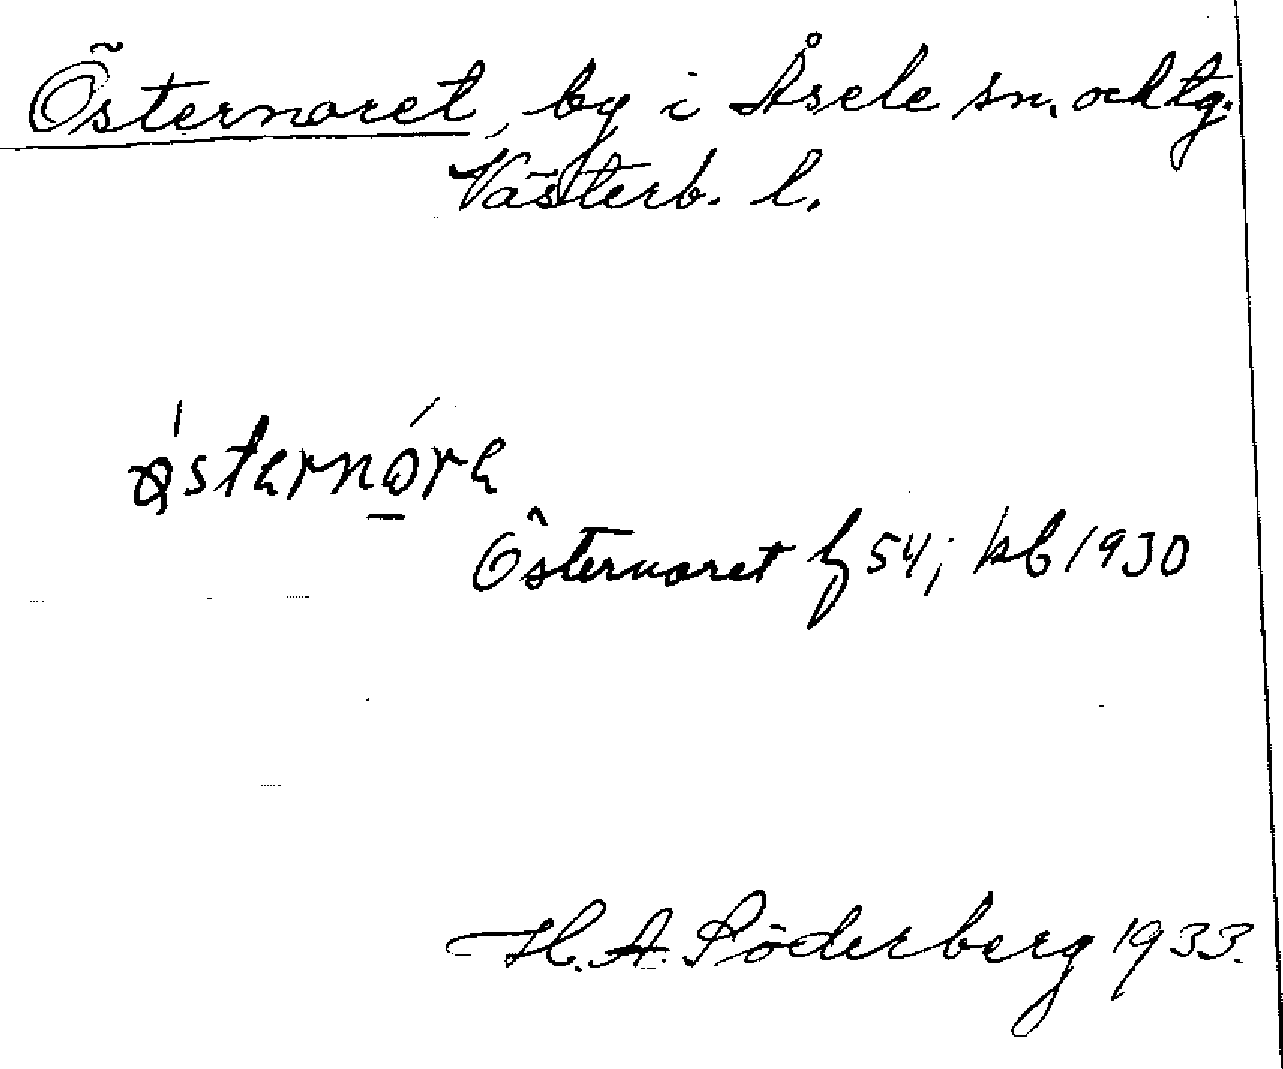 Östernoret, by i Åsele sn. och tg.
Västerb. l.
österno̲re
Östernoret 54; kb 1930
H. A. Söderberg 1933.